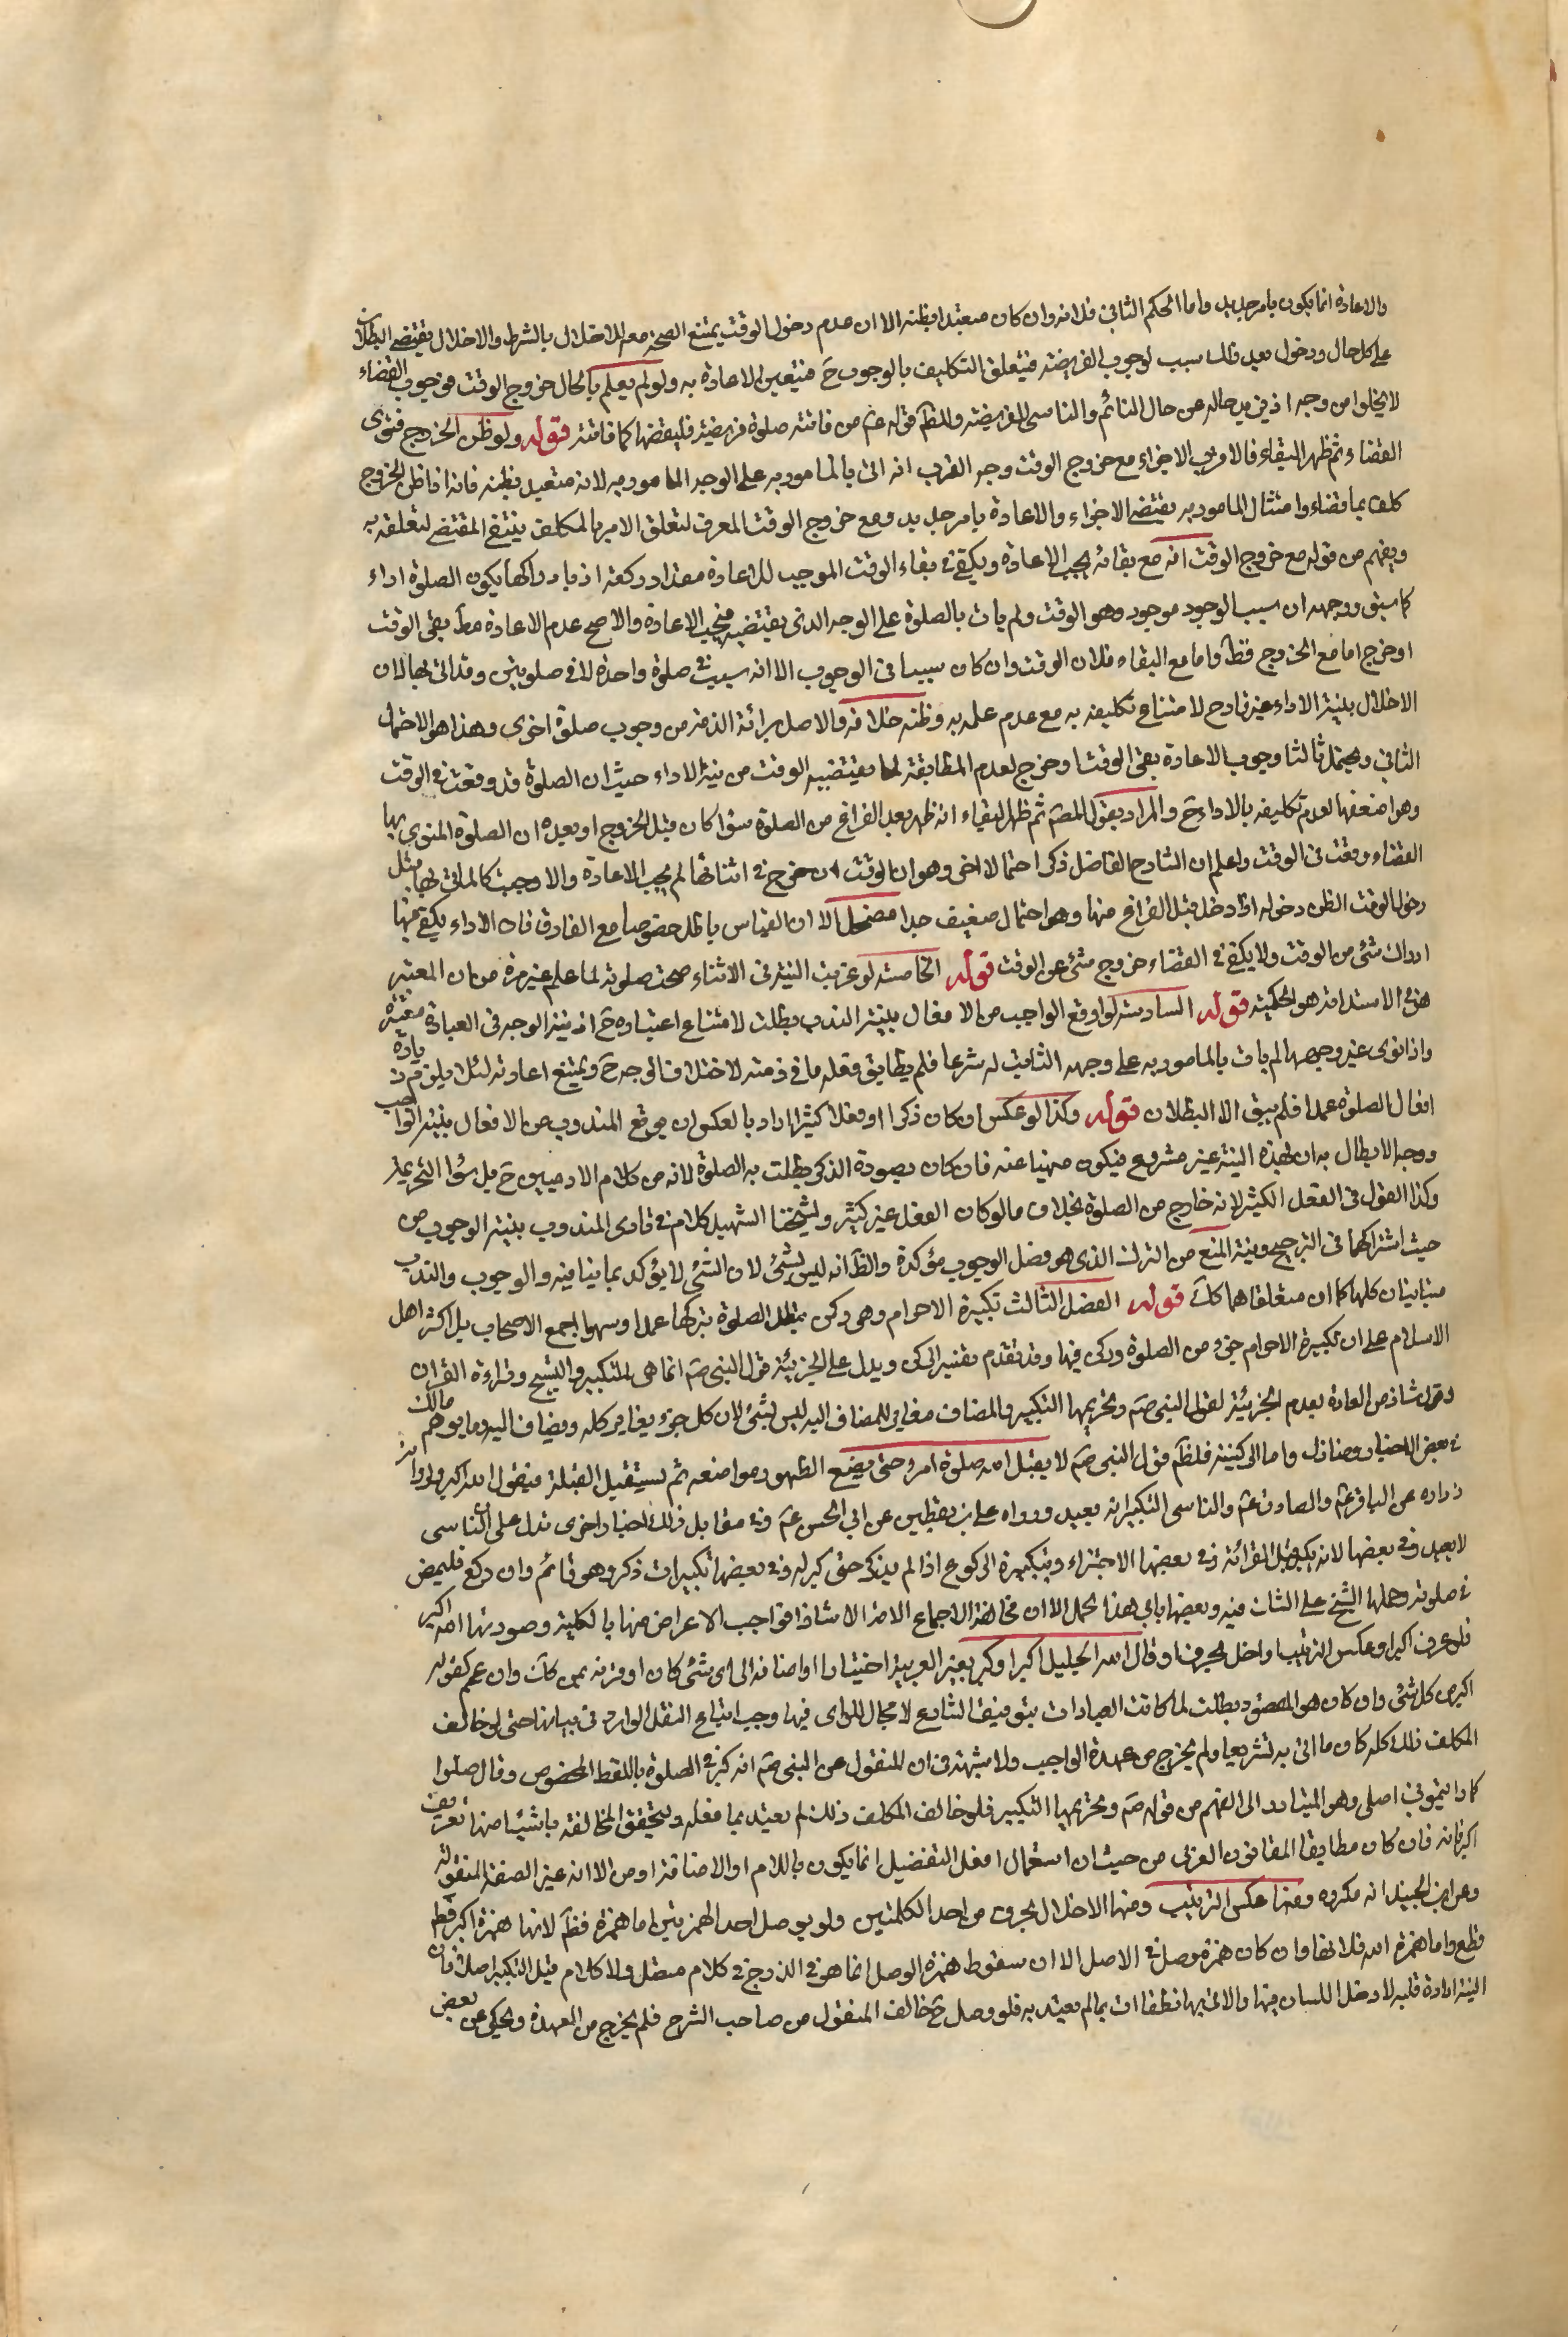 والاعادة انما يكون بامر جديد واما الحكم الثاني فلانه وان كان متعبدا بظنه الا ان عدم دخول الوقت يمتنع الصحة معه للاختلال بالشرط والاخلال يقتضي البطلان
على كل حال ودخول بعد ذلك سبب لوجوب الفريضة فيتعلق التكليف بالوجوب ح فيتعين الاعادة به ولو لم يعلم بالحال خروج الوقت فوجوب القضاء
لا يخلوا من وجه اذ يزيد حاله عن حال النائم والناسي للفريضة والظ قوله ع من فاتته صلوة فريضة فليقضها كما فاتته قوله ولو ظن الخروج فنوى
القضاء ثم ظهر البقاء فالاقرب الاجزاء مع خروج الوقت وجه القرب انه اتى بالمامور به على الوجه المامور به لانه متعبد بظنه فانه اذا ظن الخروج
كلف بما قضاء وامتثال المامور به يقتضي الاجزاء والاعادة بامر جديد ومع خروج الوقت المعرف لتعلق الامر بالمكلف ينتفي المقتضي لتعلقه به
ويفهم من قوله مع خروج الوقت انه مع بقائه يجب الاعادة ويكفي في بقاء الوقت الموجب للاعادة مقدار ركعة اذ بادراكها يكون الصلوة اداء
كما سبق ووجهه ان سبب الوجود موجود وهو الوقت ولم يات بالصلوة على الوجه الذي يقتضيه فيجب الاعادة والاصح عدم الاعادة مط بقي الوقت
او خرج اما مع الخروج فظ واما مع البقاء فلان الوقت وان كان سببا في الوجوب الا انه سبب في صلوة واحدة لا في صلوتين وقد اتى بها لان
الاخلال بنية الاداء غير قادح لامتناع تكليفه به مع عدم علمه به وظنه خلافه والاصل برائة الذمة من وجوب صلوة اخرى وهذا هو الاحتمال
الثاني ويحتمل ثالثا وجوب الاعادة بقي الوقت او خرج لعدم المطابقة لما يقتضيه الوقت من نية الاداء حيث ان الصلوة قد وقعت في الوقت
وهو اضعفها لعدم تكليفه بالاداء ح والمراد بقول المص ثم ظهر البقاء انه ظهر بعد الفراغ من الصلوة سواء كان قبل الخروج او بعده ان الصلوة المنوي بها
القضاء وقعت في الوقت واعلم ان الشارح الفاضل ذكر احتمالا اخر وهو ان الوقت ان خرج في اثنائها لم يجب الاعادة والا وجبت كالماتي بها قبل
دخول الوقت الظن دخوله اذا دخل قبل الفراغ منها وهو احتمال ضعيف جدا مضمحل الا ان القياس باطل خصوصا مع الفارق فان الاداء يكفي فيها
ادراك شئ من الوقت ولا يكفي في القضاء خروج شئ عن الوقت قوله الخامسة لو عزبت النية في الاثناء صحت صلوته لما علم غير مرة من ان المعتبر
هو الاستدامة هو الحكمية قوله السادسة لو اوقع الواجب من الافعال بنية الندب بطلت لامتناع اعتباره ح اذ نية الوجه في العبادة معتبرة
واذا نوى غير وجهها لم يات بالمامور به على وجهه الثابت له شرعا فلم يطابق فعله ما في ذمته لاختلاف الوجه ح ويمتنع اعادته لئلا يلزم زيادة
افعال الصلوة عمدا فلم يبق الا البطلان قوله وكذا لو عكس ان كان ذكرا او فعلا كثيرا اراد بالعكس ان يوقع المندوب من الافعال بنية الواجب
ووجه الابطال به ان لهذه النية غير مشروع فيكون منهيا عنه فان كان بصورة الذكر بطلت به الصلوة لانه من كلام الادميين ح بل سوا التحريمة
وكذا القول في الفعل الكثير لانه خارج من الصلوة بخلاف ما لو كان الفعل غير كثير ولشيخنا الشهيد كلام في تادي المندوب بنية الوجوب من
حيث اشتراكهما في الترجيح ونية المنع من الترك الذي هو فصل الوجوب مؤكدة والظ انه ليس بشئ لان الشئ لا يؤكد بما ينافيه والوجوب والندب
متباينان كلها كما ان متعلقاهما كك قوله الفصل الثالث تكبيرة الاحرام وهي ركن تبطل الصلوة بتركها عمدا وسهوا اجمع الاصحاب بل اكثر اهل
الاسلام على ان تكبيرة الاحرام جزء من الصلوة وركن فيها وقد تقدم تفسير الركن ويدل على الجزئية قول النبي ص انما هي التكبير والتسبيح وقراءة القران
وقول شاذ من العادة بعدم الجزئية لقول النبي ص وتحريمها التكبير والمضاف مغاير للمضاف اليه ليس بشئ لان كل جزء يغاير كله ويضاف اليه وما يوهم ذلك
في بعض الاخبار وما ذلك واما الركنية فلظ قول النبي ص لا يقبل الله صلوة امرء حتى يضع الطهور مواضعه ثم يستقبل القبلة فيقول الله اكبر ولرواية
زرارة عن الباقر ع والصادق ع والناسي التكبير انه يعيد ورواه علي بن يقطين عن ابي الحسن ع وفي مقابل ذلك اخبار اخرى تدل على الناسي
لا يعيد وفي بعضها لانه يكبر قبل القرائة وفي بعضها الاجتزاء وبتكبيرة الركوع اذا لم يذكر حتى كبر له وفي بعضها تكبيرات ذكر وهو قائم وان ركع فليمض
في صلوته وحملها الشيخ على الشاك فيه وبعضها يابى هذا الحمل الا ان مخالفة الاجماع الا من الا شاذا فواجب الاعراض عنها بالكلية وصورتها الله اكبر
فلو عرف اكبر او عكس الترتيب او اخل بحرف او قال الله الجليل اكبر او كبر بغير العربية اختيارا او اضافه الى اي شئ كان او قرنه بمن كك وان عم كقوله
اكبر من كل شئ وان كان هو المقصود بطلت لما كانت العبادات بتوقيف الشارع لا مجال للراى فيها وجب اتباع النقل الوارد في بيانها حتى لو خالف
المكلف ذلك كله كان ما اتى به تشريعا ولم يخرج من عهدة الواجب ولا شبهة في ان المنقول عن النبي ص انه كبر في الصلوة باللفظ المخصوص وقال صلوا
كما رايتموني اصلي وهو المتبادر الى الفهم من قوله ص وتحريمها التكبير فلو خالف المكلف ذلك لم يعتد بما فعله ويتحقق المخالفة باشياء منها تعريف
اكبر فانه فان كان مطابقا للقانون العربي من حيث ان استعمال افعل التفضيل انما يكون باللام او الاضافة او من الا انه غير الصفة المنقولة
وعن ابن الجنيد انه مكروه ومنها عكس الترتيب ومنها الاخلال بحرف من احد الكلمتين ولو بوصل احد الهمزتين اما همزة فظ لانها همزة اكبر قطع
قطع واما همزة الله فلانها وان كان همزة وصل في الاصل الا ان سقوط همزة الوصل انما هو في الدرج في كلام متصل ولا كلام قبل التكبير اصلا فان
النية ارادة قلبية لا دخل اللسان فيها والاتي بها نطقا ات بما لم يعتد به فلو وصل ح خالف المنقول من صاحب الشرح فلم يخرج من العهدة ويحكى عن بعض